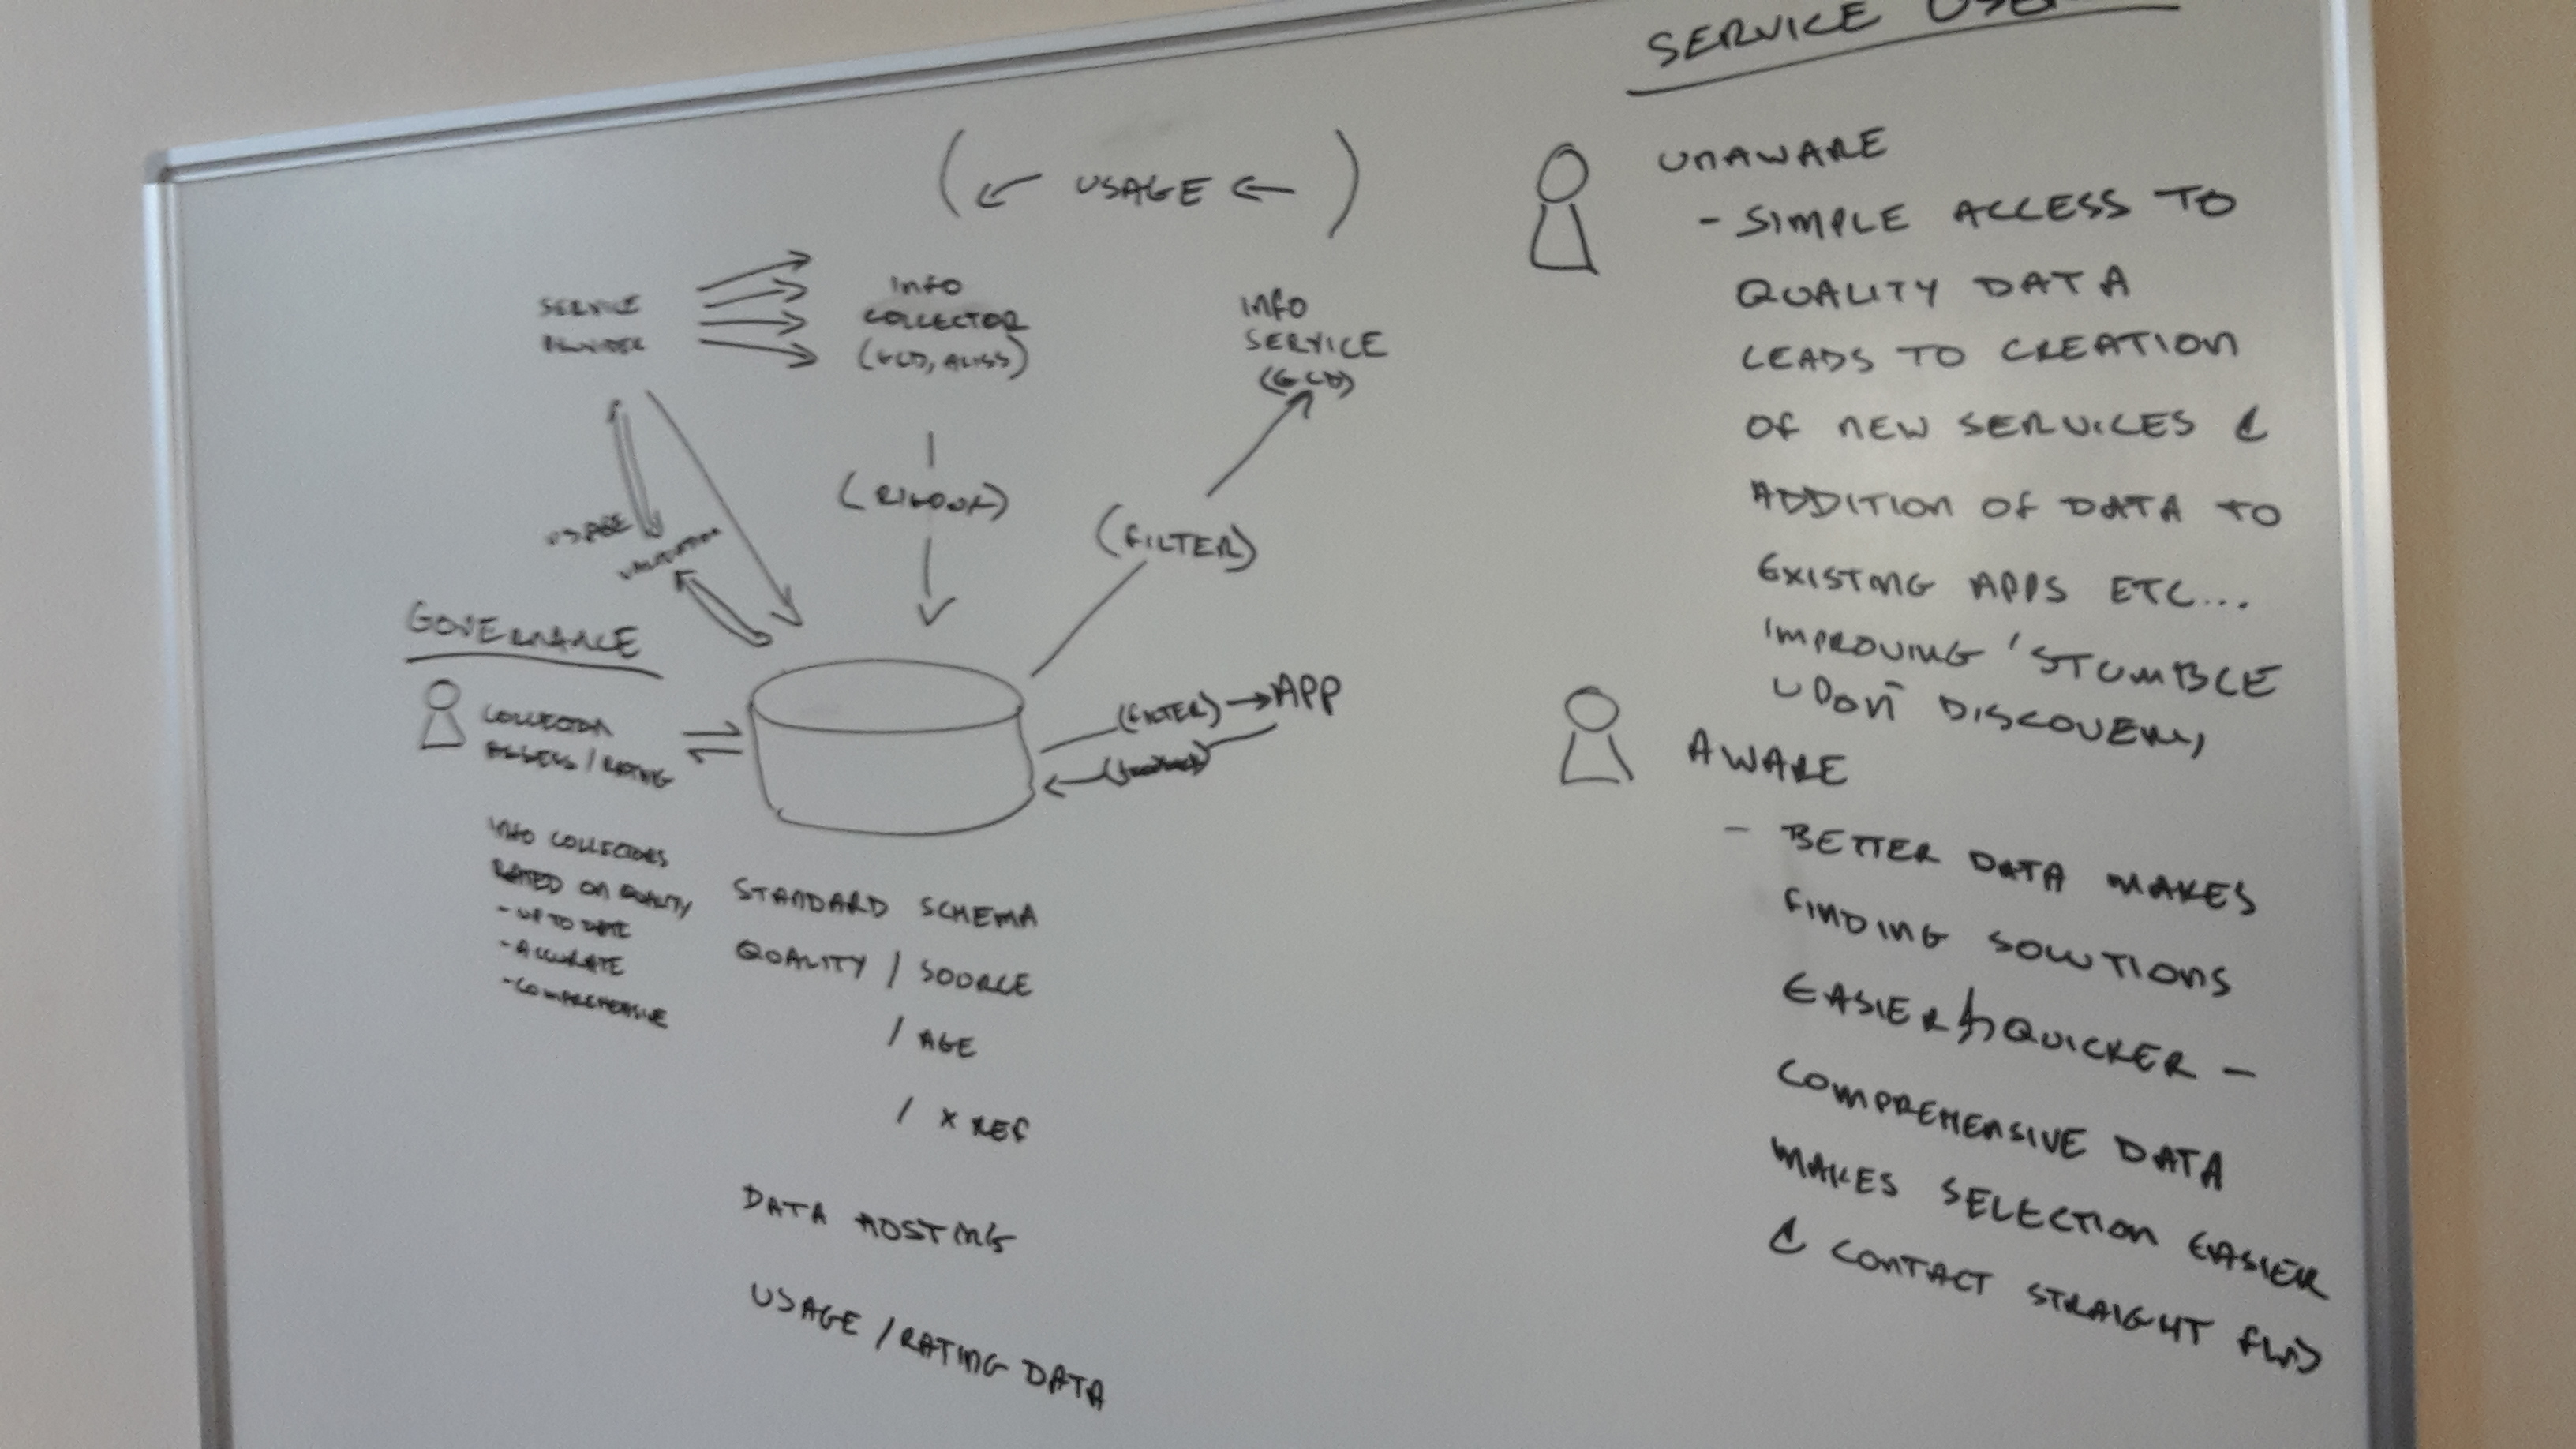 (← USAGE ←)
SERVICE
PROVIDER
INFO
COLLECTOR
(GCD, ALISS)
INFO
SERVICE
(GCD)
(RIGOUR)
(FILTER)
USAGE
VALIDATION
GOVERNANCE
COLLECTOR
ASSESS / RATING
INFO COLLECTORS
RATED ON QUALITY
- UP TO DATE
- ACCURATE
- COMPREHENSIVE
(FILTER) → APP
STANDARD SCHEMA
QUALITY / SOURCE
/ AGE
/ X REF
DATA HOSTING
USAGE / RATING DATA
SERVICE
UNAWARE
- SIMPLE ACCESS TO
QUALITY DATA
LEADS TO CREATION
OF NEW SERVICES &
ADDITION OF DATA TO
EXISTING APPS ETC...
IMPROVING 'STUMBLE
UPON' DISCOVERY
AWARE
- BETTER DATA MAKES
FINDING SOLUTIONS
EASIER & QUICKER -
COMPREHENSIVE DATA
MAKES SELECTION EASIER
& CONTACT STRAIGHT FWD